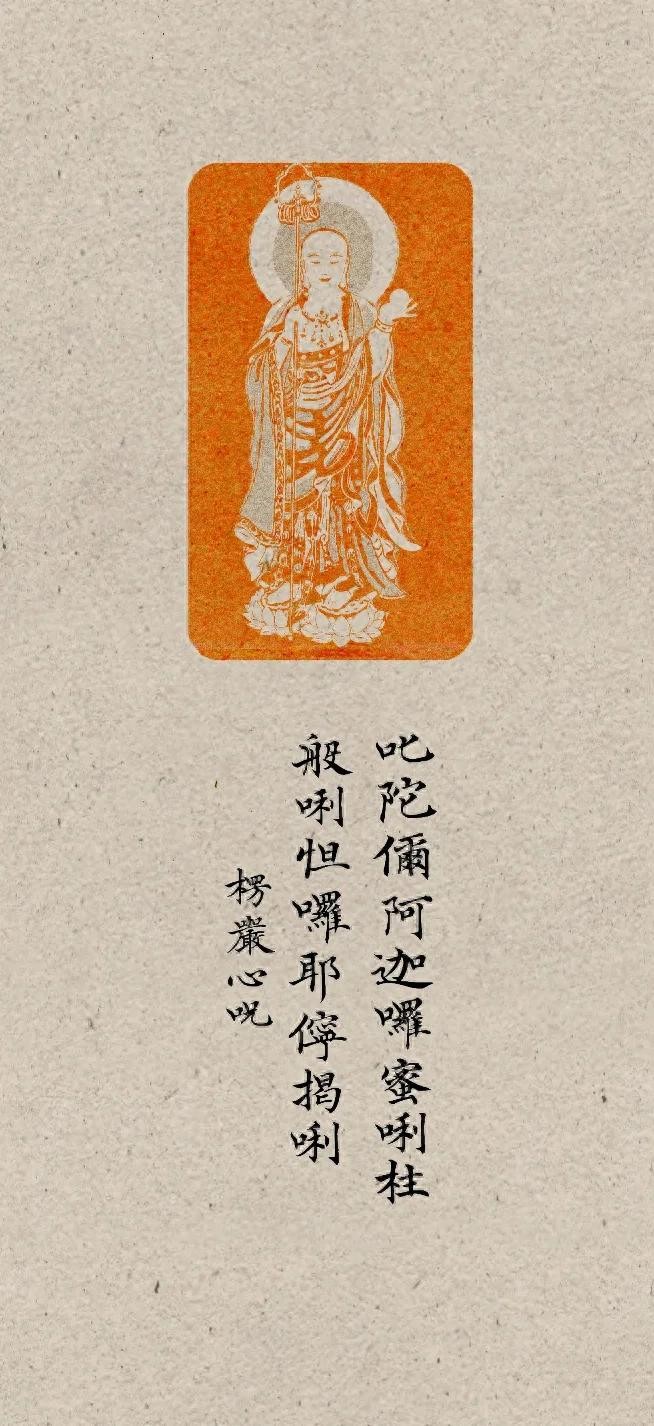 叱陀儞阿迦囉蜜唎柱
般唎怛囉耶儜揭唎
楞嚴心呪